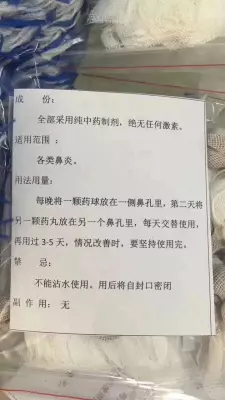 成　份：
全部采用纯中药制剂，绝无任何激素。
适用范围：
各类鼻炎。
用法用量：
每晚将一颗药球放在一侧鼻孔里，第二天将
另一颗药丸放在另一个鼻孔里，每天交替使用，
再用过 3-5 天，情况改善时，要坚持使用完。
禁　忌：
不能沾水使用。用后将自封口密闭
副 作 用： 无